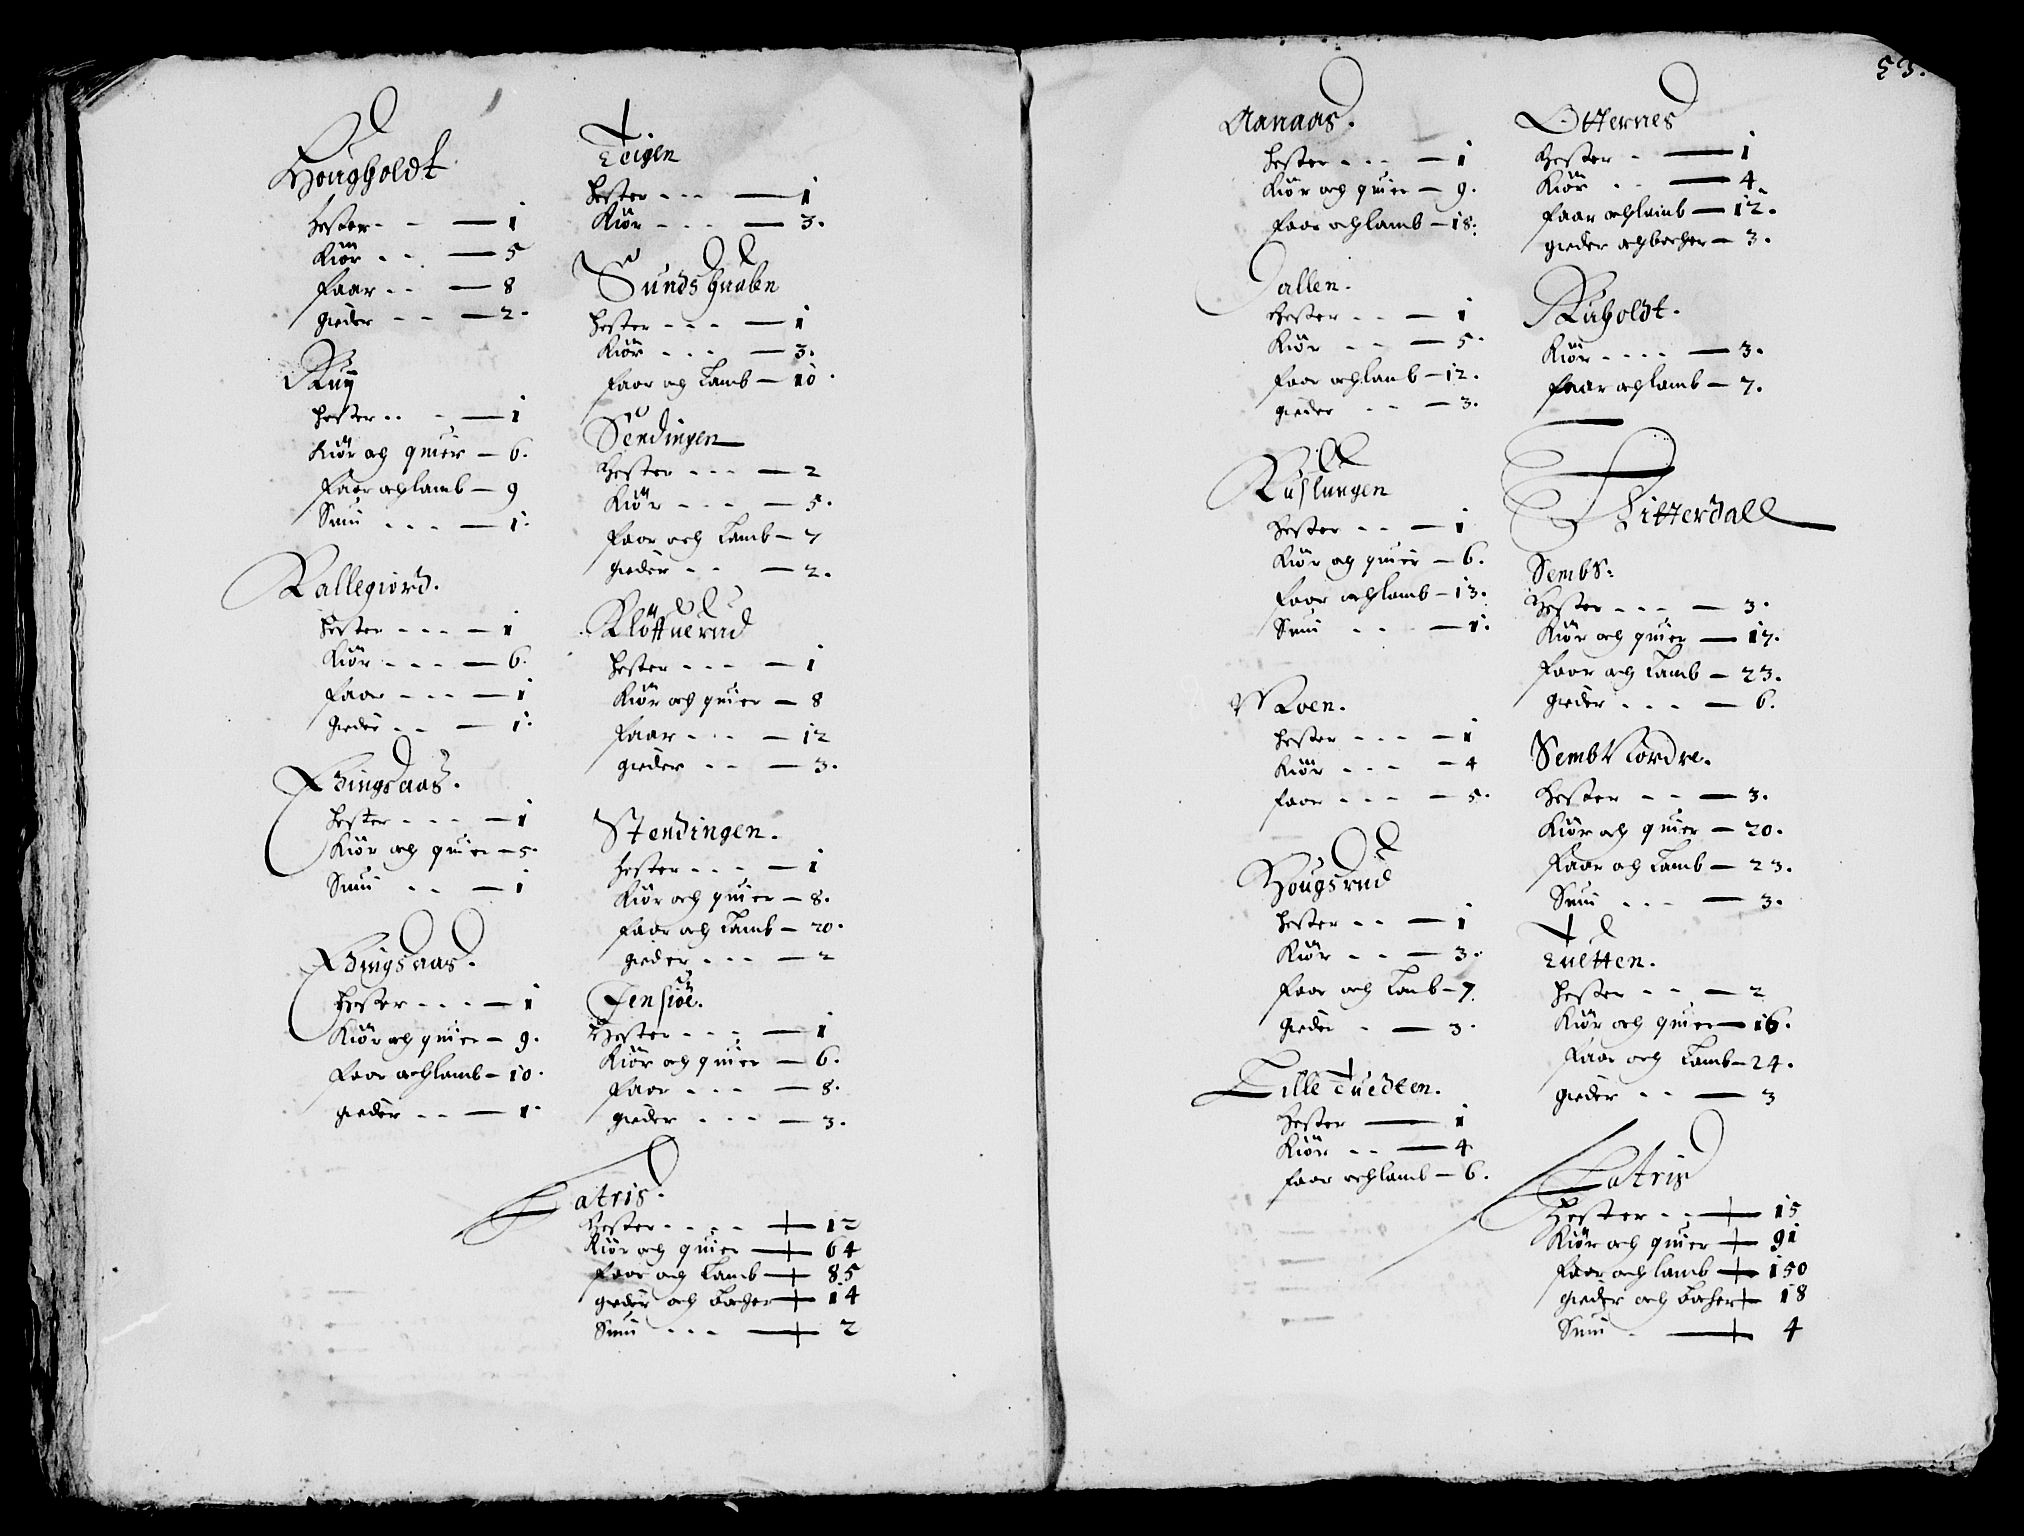 Hougholdt
Hester - - — 1
Kiör - - — 5
Faar - - — 8
gieder - - — 2.
Ruÿ
Hester - - - — 1
Kiör och quier — 6.
Faar och lamb — 9
Suin - - - — 1.
Kallegiord.
Hester - - - — 1
Kiör - - - — 6.
Faar - - - — 1
gieder - - — 1.
Bingsaas.
Hester - - - — 1
Kiör och quier — 5.
Suin - - — 1
Bingsaas.
Hester - - - — 1
Kiör och quier — 9.
Faar och lamb — 10.
gieder - - — 1.
Teigen
Hester - - - — 1
Kiör - - - — 3.
Sundshaaben
Hester - - - — 1
Kiör - - - — 3.
Faar og Lamb — 10.
Sendingen
Hester - - - — 2
Kiör - - - — 5.
Faar och Lamb — 7
gieder - - — 2.
Klöffuerud
Hester - - - — 1
Kiör och quier — 8
Faar - - - — 12
gieder - - — 3.
Stendingen.
Hester - - - — 1
Kiör och quier — 8.
Faar och Lamb — 20.
gieder - - - — 2
Jensiöe.
Hester - - - — 1
Kiör och quier — 6.
Faar - - - — 8.
gieder - - - — 3.
Latris.
Hester - - - - — 12
Kiör och quier — 64
Faar och Lamb — 85
gieder och Bocher — 14
Suin - - - — 2
53.
Aanaas.
Hester - - - — 1
Kiör och quier — 9.
Faar och lamb — 18.
Dallen.
Hester - - — 1
Kiör - - — 5.
Faar och lamb — 12.
gieder - - — 3.
Kuslungen
Hester - - — 1
Kiör og quier — 6.
Faar och lamb — 13.
Suin - - - — 1.
Moen.
Hester - - - — 1
Kiör - - - — 4
Faar - - - — 5.
Hougsrud
Hester - - — 1
Kiör - - — 3.
Faar och Lamb — 7.
gieder - — 3.
Lille Tuedten.
Hester — 1
Kiör - - — 4
Faar och lamb — 6.
Otternes
Hester - — 1
Kiör - - — 4.
Faar och lamb — 12.
gieder och bocher — 3.
Ruholdt.
Kiör - - - - — 3.
Faar och lamb — 7.
Hitterdall
Sembs:
Hester - - - — 3.
Kiör och quier — 17.
Faar och Lamb — 23.
gieder - - - — 6.
Semb Nordre.
Hester - - — 3.
Kiör och quier — 20.
Faar och Lamb — 23.
Suin - - - — 3.
Tuetten.
Hester - - — 2
Kiör och quier — 16.
Faar och Lamb — 24.
gieder - - — 3
Latris
Hester - - — 15
Kiör och quier — 91
Faar och lamb — 150
gieder och Bocher — 18
Suin - — 4